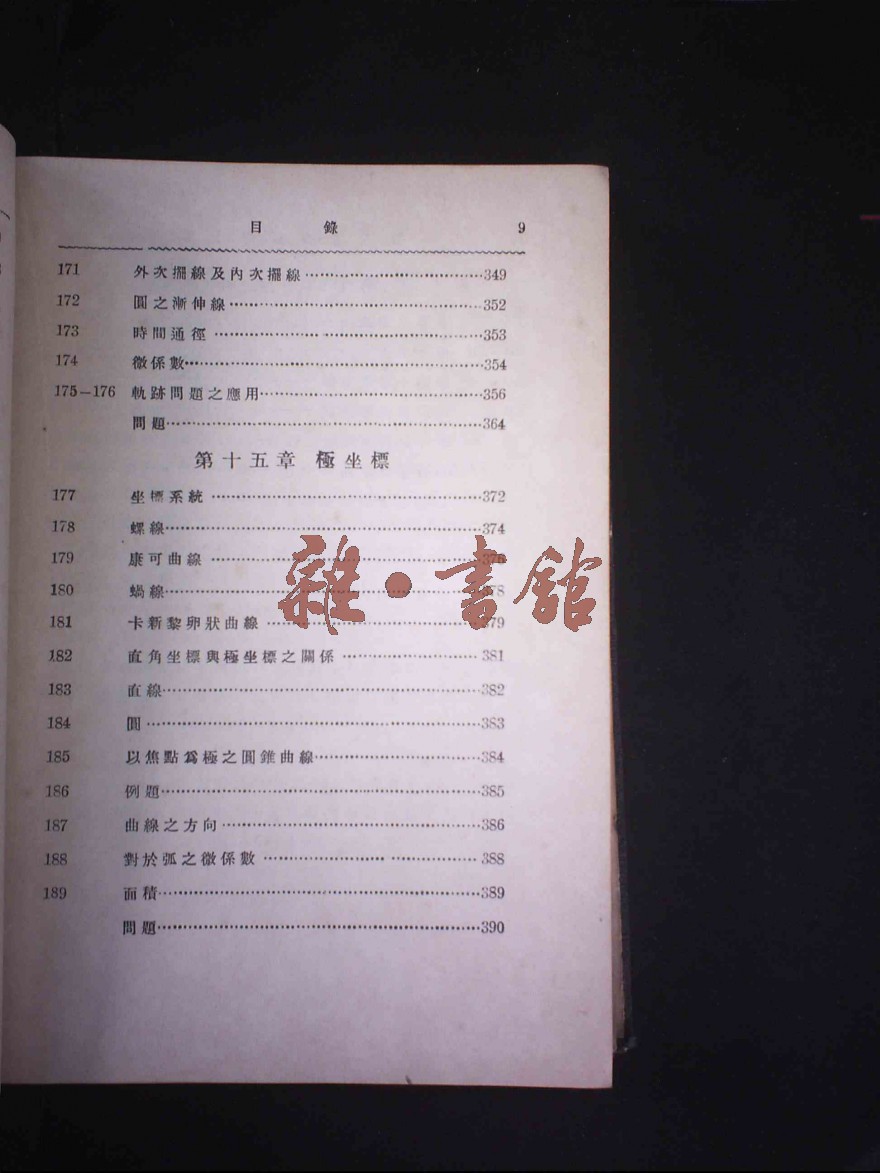 目 錄 9
171 外次擺線及內次擺線……349
172 圓之漸伸線……352
173 時間通徑……353
174 微係數……354
175—176 軌跡問題之應用……356
問題……364
第十五章 極坐標
177 坐標系統……372
178 螺線……374
179 康可曲線……376
180 蝸線……378
181 卡新黎卵狀曲線……379
182 直角坐標與極坐標之關係……381
183 直線……382
184 圓……383
185 以焦點爲極之圓錐曲線……384
186 例題……385
187 曲線之方向……386
188 對於弧之微係數……388
189 面積……389
問題……390
雜·書館